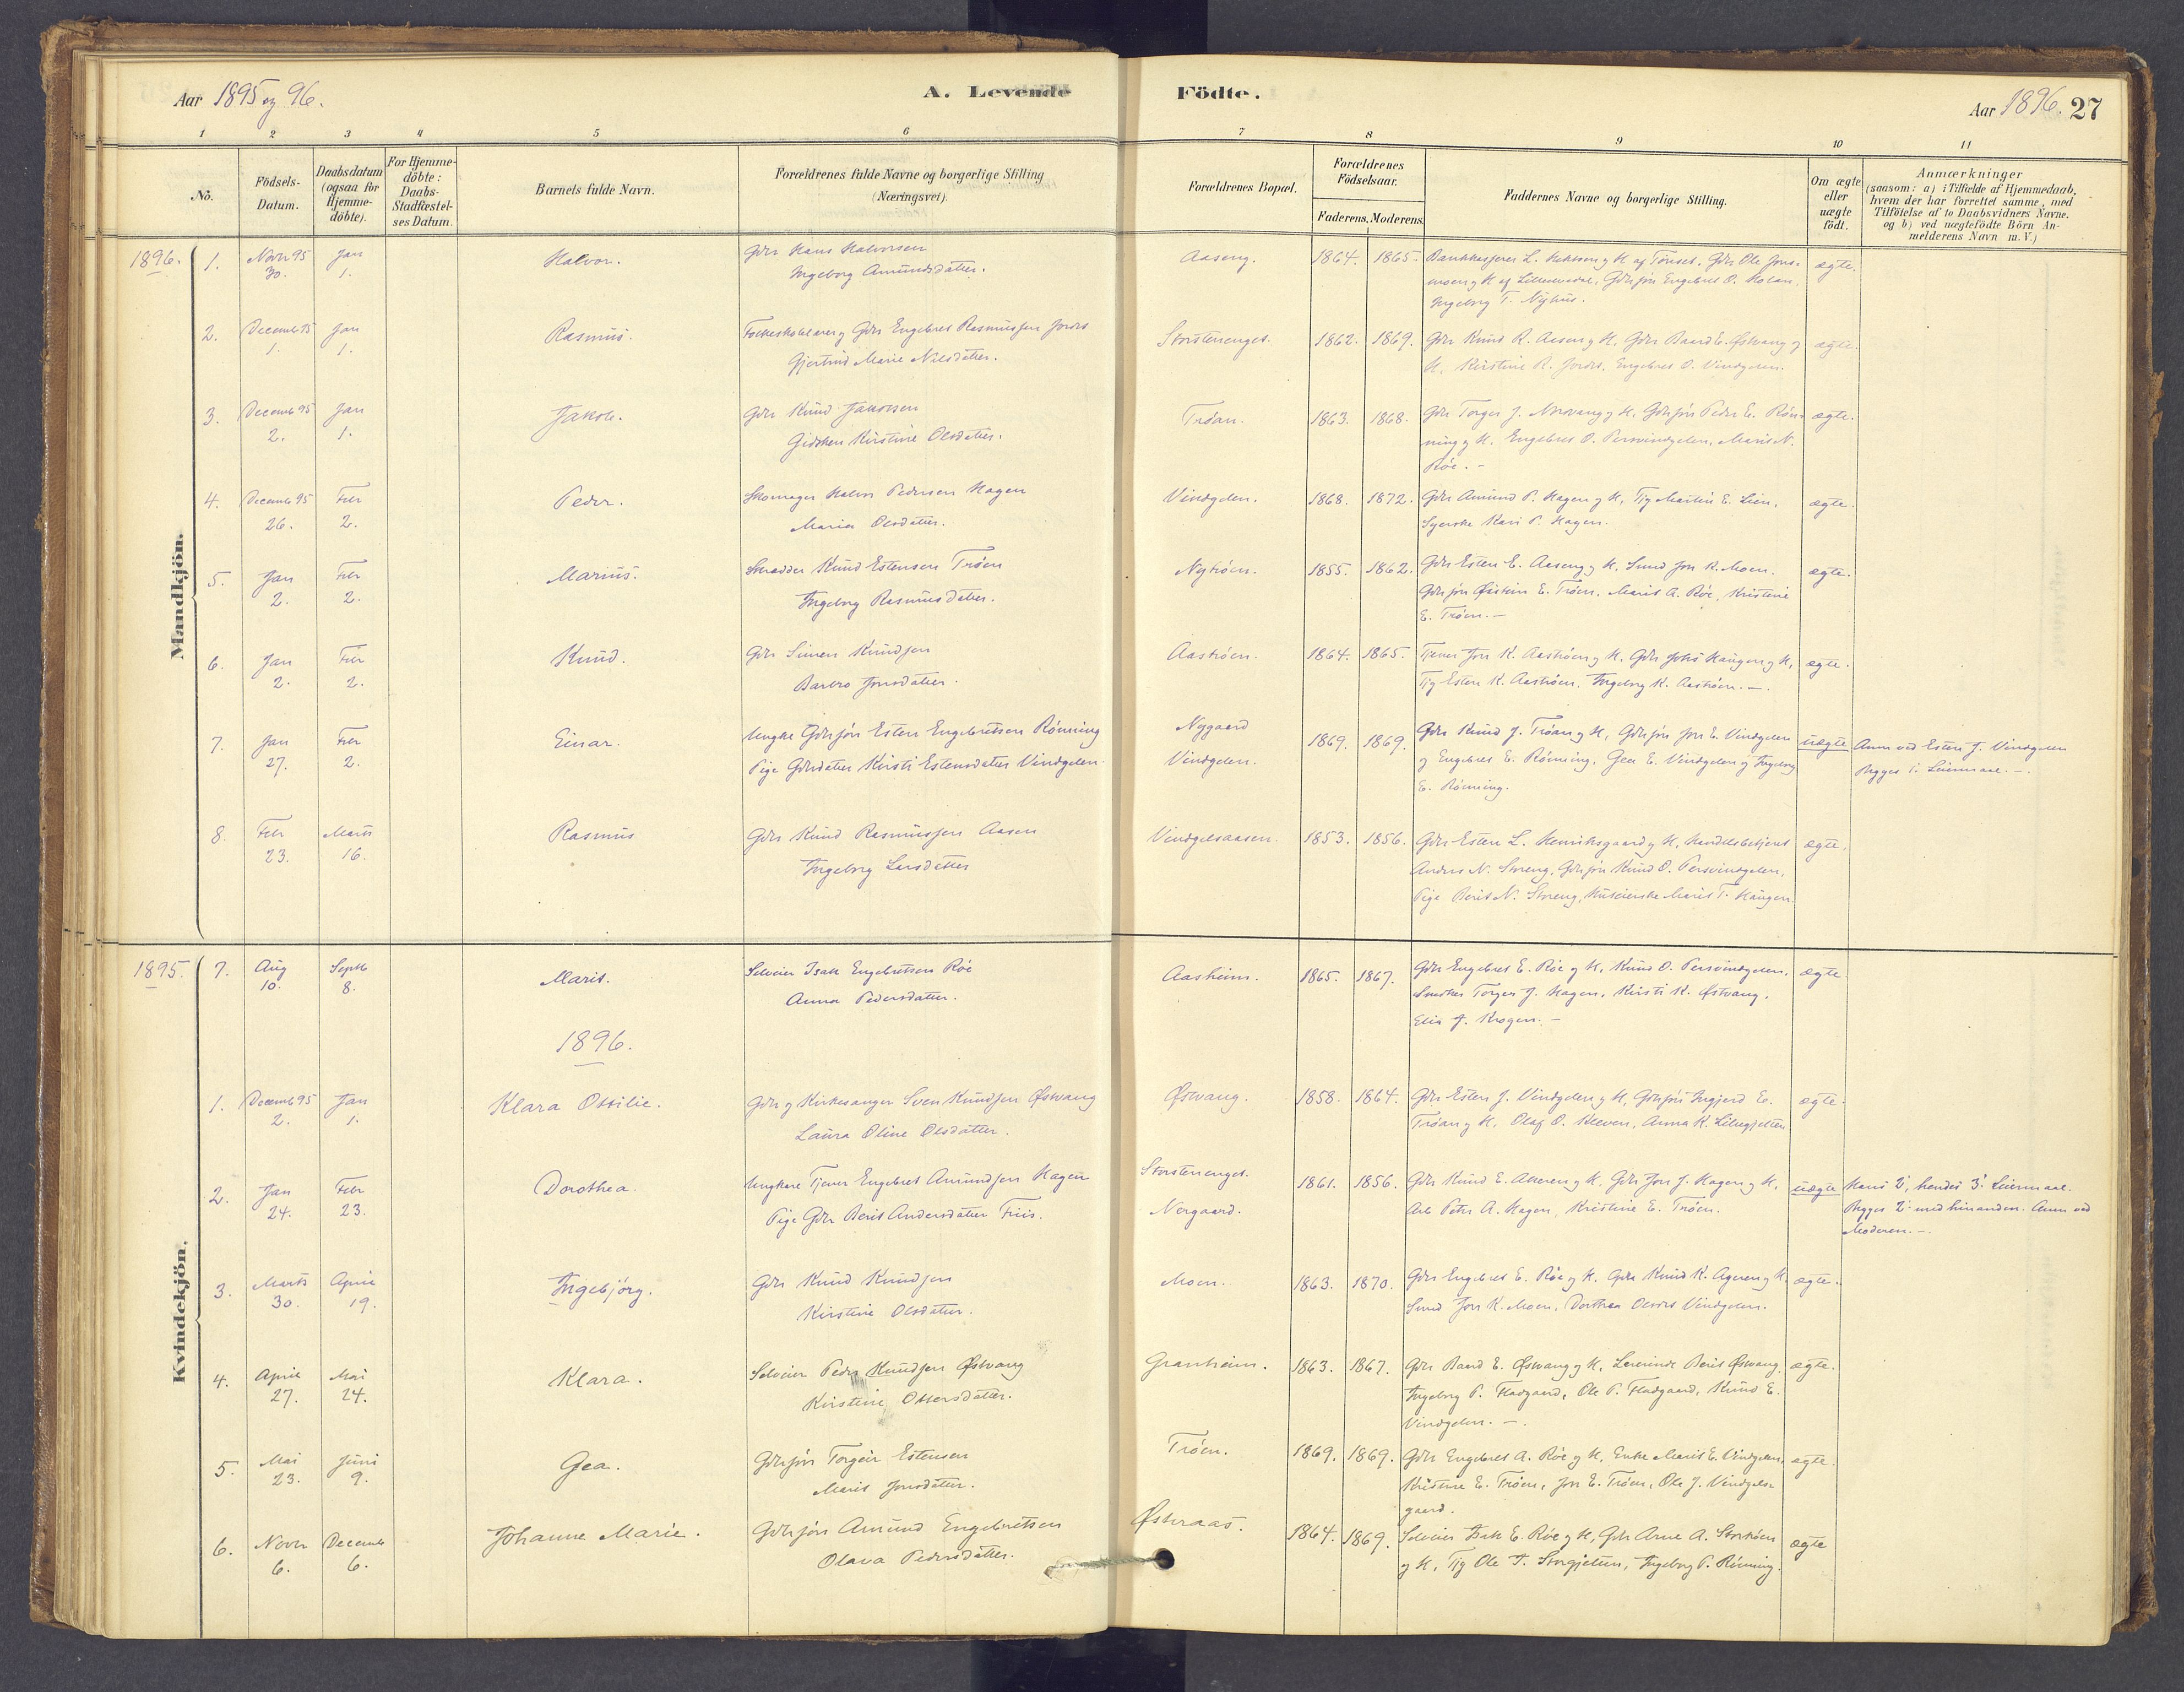 Aar 1895 og 96.
A. Levende Födte.
Aar 1896. 27
1 2 3 4 5 6 7 8 9 10 11
No.
Födsels-Datum.
Daabsdatum (ogsaa for Hjemme-döbte).
For Hjemme-döbte: Daabs-Stadfæstel-ses Datum.
Barnets fulde Navn.
Forældrenes fulde Navne og borgerlige Stilling (Næringsvei).
Forældrenes Bopæl.
Forældrenes Födselsaar.
Faderens. Moderens.
Faddernes Navne og borgerlige Stilling.
Om ægte eller uægte födt.
Anmærkninger
(saasom: a) i Tilfælde af Hjemmedaab,
hvem der har forrettet samme, med
Tilföielse af to Daabsvidners Navne.
og b) ved uægtefödte Börn An-
melderens Navn m.V.)
Mandkjön.
1896. 1. Novbr 95 30. Jan 1. Halvor.
Gbr Hans Halvorsen
Ingeborg Amundsdatter.
Aaseng. 1864. 1865.
af Tönset, Gbr Ole
Ingeborg T. Nyhus.
ægte.
2. Decemb 95 1. Jan 1. Rasmus.
Folkeskolelærer og Gbr Engebret Rasmussen Jordet
Gjertrud Marie Nilsdatter.
Storstenenget. 1862. 1869.
Gbr Knud R. Aasen og H, Gbr Baard E. Østvang og
H, Kirstine R. Jordet, Engebret O. Vindgelen.
ægte.
3. Decemb 95 2. Jan 1. Jakob.
Gbr Knud Jakobsen
Gidsken Kirstine Olsdatter.
Tröan. 1863. 1868.
Gbr Torger J. Norvang og H, Gbrsön Peder E. Rön-
ning og H. Engebret O. Persvindgelen, Marit N.
Röe. –
ægte.
4. Decemb 95 26. Febr 2. Peder.
Skomager Halvor Pedersen Hagen
Maria Olsdatter.
Vindgelen. 1868. 1872.
Gbr Amund P. Hagen og H, Tjg Martin E. Lien,
Syerske Kari P. Hagen.
ægte.
5. Jan 2. Febr 2. Marius.
Skrædder Knud Estensen Tröen
Ingeborg Rasmusdatter.
Nytröen. 1855. 1862.
Gbr Esten E. Aaseng og H, Smed Jon K. Moen.
Gbrsön Øistein E. Tröen, Marit A. Röe, Kristine
E. Tröen. –
ægte.
6. Jan 2. Febr 2. Knud.
Gbr Simen Knudsen
Barbro Jonsdatter.
Aaströen. 1864. 1865.
Tjener Jon K. Aaströen og H, Gbr Johs Haugen og H,
Tjg Esten K. Aaströen. Ingeborg K. Aaströen. –.
ægte.
7. Jan 27. Febr 2. Einar.
Ungke Gbrsön Esten Engebretsen Rönning
Pige Gbrdatter Kirsti Estensdatter Vindgelen.
Nygaard
Vindgelen.
1869. 1869.
Gbr Knud J. Tröan og H, Gbrsön Jon E. Vindgelen
og Engebret E. Rönning, Gea E. Vindgelen og Ingeborg
E. Rönning.
uægte
Anm ved Esten J. Vindgelen
Begges 1' Leiermaal. –.
8. Febr 23. Marts 16. Rasmus
Gbr Knud Rasmussen Aasen
Ingeborg Larsdatter
Vindgelsaasen. 1853. 1856.
Gbr Esten L. Henriksgaard og H, Handelsbetjent
Anders N. Storeng, Gbrsön Knud O. Persvindgelen,
Pige Berit N. Storeng, Marit T. Haugen.
ægte.
Kvindekjön.
1895. 7. Aug 10. Septb 8. Marit.
Selveier Isak Engebretsen Röe
Anna Pedersdatter.
Aasheim. 1865. 1867.
Gbr Engebret E. Röe og H, Knud O. Persvindgelen.
Snedker Torger J. Hagen, Kirsti K. Østvang,
Elin J. Krogen. –
ægte
1896.
1. Decemb 95 2. Jan 1. Klara Otilie.
Gbr og Kirkesanger Sven Knudsen Østvang
Laura Oline Olsdatter.
Østvang. 1858. 1864.
Gbr Esten J. Vindgelen og H, Gbrsön Ingjerd E.
Tröan og H. Olaf O. Kleven, Anna K. Lillegjelten
ægte.
2. Jan 24. Febr 23. Dorothea.
Ungkare Tjener Engebret Amundsen Hagen
Pige Gbdr Berit Andersdatter Friis.
Storstenenget.
Nergaard.
1861. 1856.
Gbr Knud E. Akeren og H, Gbr Jon J. Hagen og H,
Arb Peter A. Hagen, Kristine E. Tröen.
uægte
Hans 2', hendes 3' Leiermaal.
Begges 2' med hinanden. Anm ved
Moderen. –.
3. Marts 30. April 19. Ingebjörg.
Gbr Knud Knudsen
Kirstine Olsdatter.
Moen. 1863. 1870.
Gbr Engebret E. Röe og H, Gbr Knud K. Ageren og H,
Smed Jon K. Moen, Dorthea Olsdt Vindgelen.
ægte.
4. April 27. Mai 24. Klara.
Selveier Peder Knudsen Østvang
Kirstine Ottersdatter.
Granheim. 1863. 1867.
Gbr Baard E. Østvang og H, Lærerinde Berit Østvang,
Ingeborg P. Fladgaard, Ole P. Fladgaard, Knud E.
Vindgelen. –.
ægte.
5. Mai 23. Juni 9. Gea.
Gbrsön Torgeir Estensen
Marit Jonsdatter.
Tröen. 1869. 1869.
Gbr Engebret A. Röe og H, Enke Marit E. Vindgelen,
Kristine E. Tröen, Jon E. Tröen, Ole J. Vindgels-
gaard.
ægte.
6. Novbr 6. Decemb 6. Johanne Marie.
Gbrsön Amund Engebretsen
Olava Pedersdatter.
Østeraas. 1864. 1869.
Selveier Isak E. Röe og H, Gbr Arne A. Stortröen
og H, Tjg Ole T. Storgjelten, Ingeborg P. Rönning.
ægte